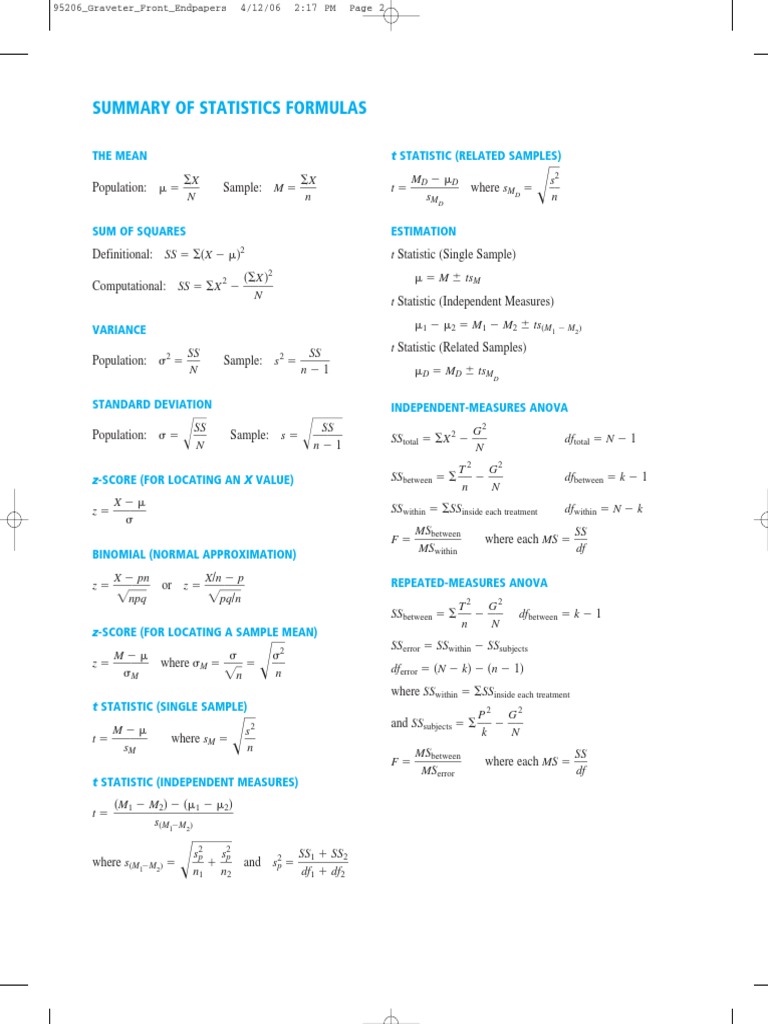 95206_Graveter_Front_Endpapers 4/12/06 2:17 PM Page 2
SUMMARY OF STATISTICS FORMULAS
THE MEAN
Population: μ = ΣX/N Sample: M = ΣX/n
SUM OF SQUARES
Definitional: SS = Σ(X − μ)²
Computational: SS = ΣX² − (ΣX)²/N
VARIANCE
Population: σ² = SS/N Sample: s² = SS/(n − 1)
STANDARD DEVIATION
Population: σ = √(SS/N) Sample: s = √(SS/(n − 1))
z-SCORE (FOR LOCATING AN X VALUE)
z = (X − μ)/σ
BINOMIAL (NORMAL APPROXIMATION)
z = (X − pn)/√(npq) or z = (X/n − p)/√(pq/n)
z-SCORE (FOR LOCATING A SAMPLE MEAN)
z = (M − μ)/σ_M where σ_M = σ/√n = √(σ²/n)
t STATISTIC (SINGLE SAMPLE)
t = (M − μ)/s_M where s_M = √(s²/n)
t STATISTIC (INDEPENDENT MEASURES)
t = ((M₁ − M₂) − (μ₁ − μ₂))/s_(M₁−M₂)
where s_(M₁−M₂) = √(s²_p/n₁ + s²_p/n₂) and s²_p = (SS₁ + SS₂)/(df₁ + df₂)
t STATISTIC (RELATED SAMPLES)
t = (M_D − μ_D)/s_M_D where s_M_D = √(s²/n)
ESTIMATION
t Statistic (Single Sample)
μ = M ± ts_M
t Statistic (Independent Measures)
μ₁ − μ₂ = M₁ − M₂ ± ts_(M₁ − M₂)
t Statistic (Related Samples)
μ_D = M_D ± ts_M_D
INDEPENDENT-MEASURES ANOVA
SS_total = ΣX² − G²/N df_total = N − 1
SS_between = Σ T²/n − G²/N df_between = k − 1
SS_within = ΣSS_inside each treatment df_within = N − k
F = MS_between/MS_within where each MS = SS/df
REPEATED-MEASURES ANOVA
SS_between = Σ T²/n − G²/N df_between = k − 1
SS_error = SS_within − SS_subjects
df_error = (N − k) − (n − 1)
where SS_within = ΣSS_inside each treatment
and SS_subjects = Σ P²/k − G²/N
F = MS_between/MS_error where each MS = SS/df